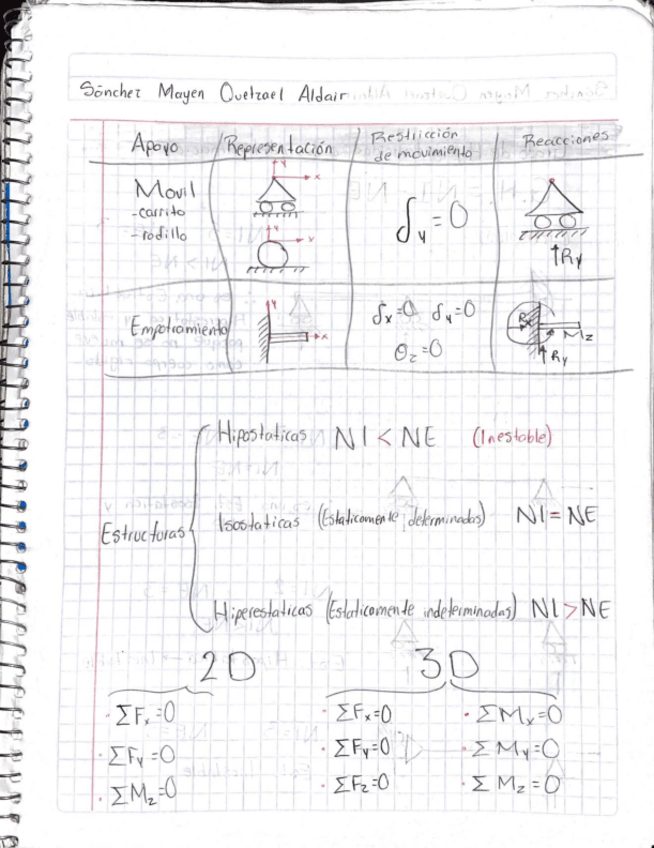 Sánchez Mayen Quetzael Aldair
Apoyo Representación Restricción de movimiento Reacciones
Movil
-carrito
-rodillo
y
x
y
x
δy=0
↑Ry
Empotramiento
y
x
δx=0 δy=0
θz=0
Rx
Mz
↑Ry
Estructuras
Hipostaticas NI < NE (Inestable)
Isostaticas (Estaticamente determinadas) NI = NE
Hiperestaticas (Estaticamente indeterminadas) NI > NE
2D
· ΣFx=0
· ΣFy=0
· ΣMz=0
3D
· ΣFx=0 · ΣMx=0
· ΣFy=0 · ΣMy=0
· ΣFz=0 · ΣMz=0